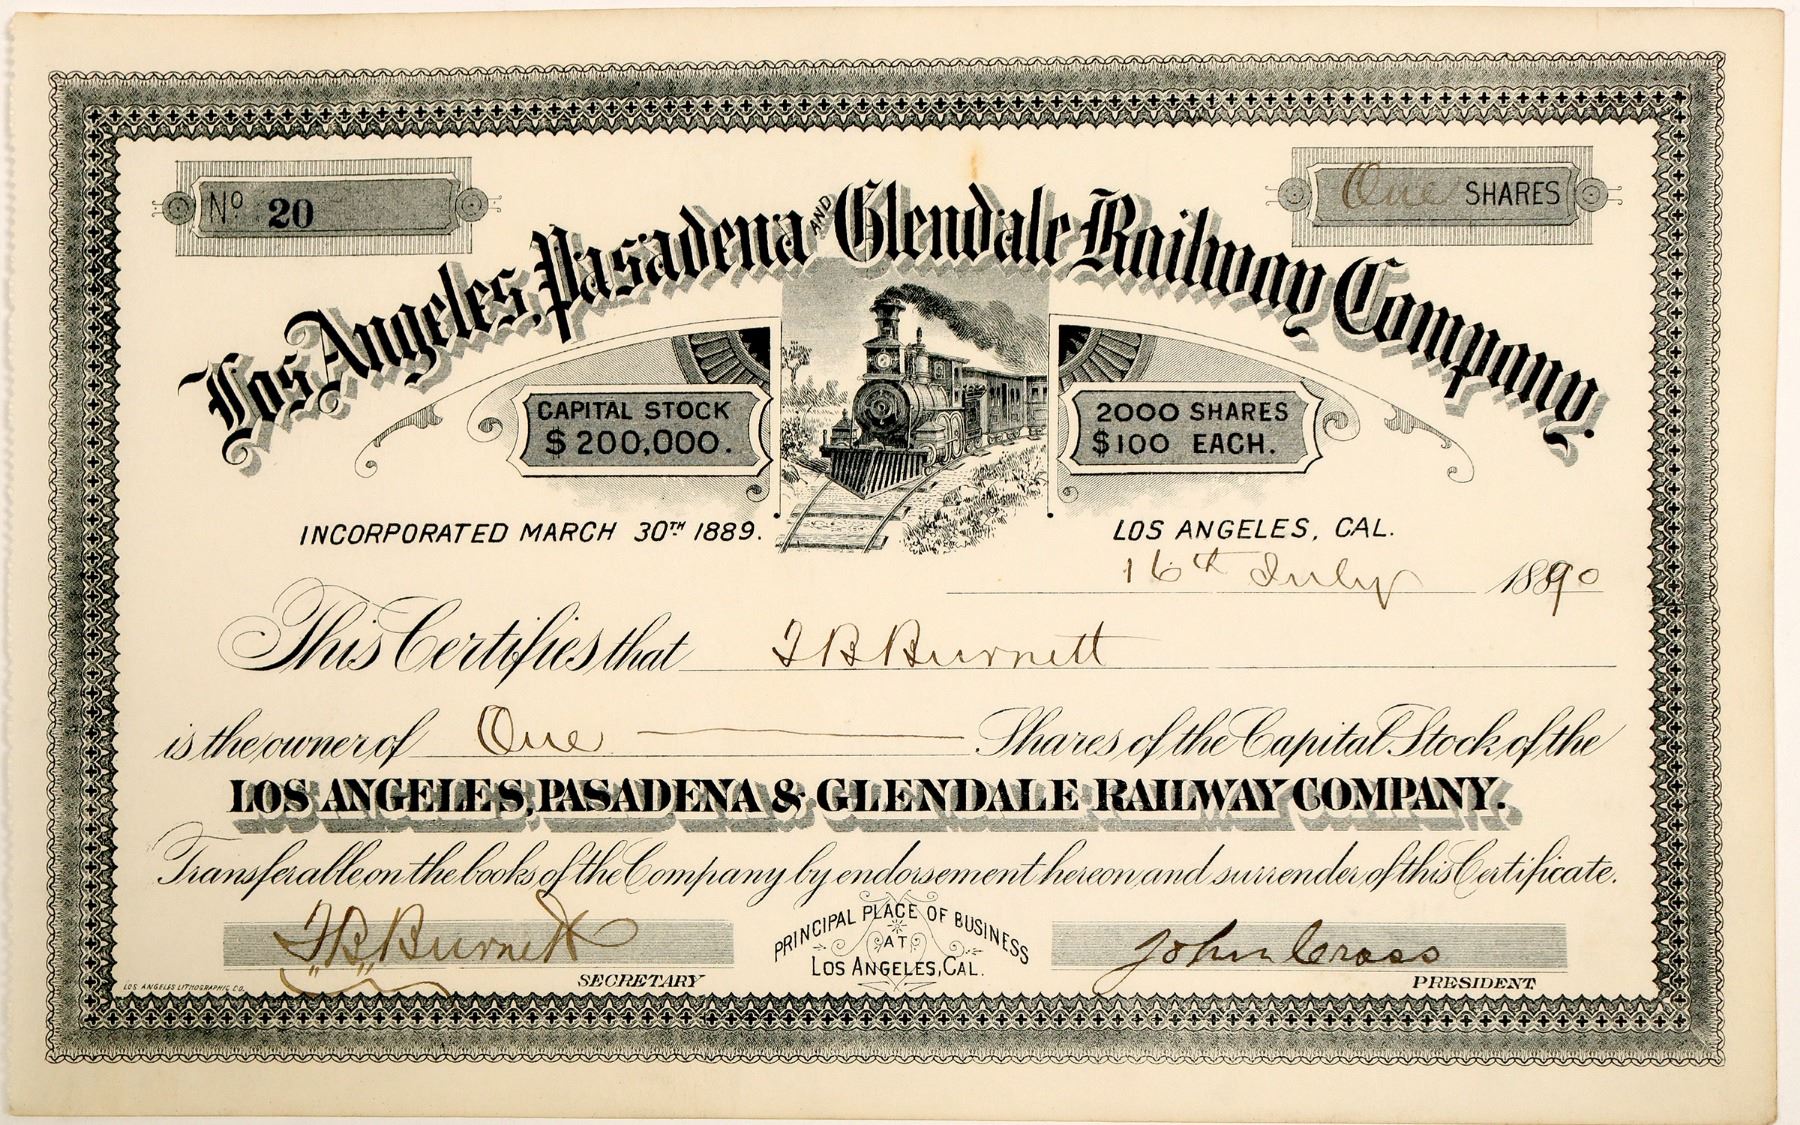 No 20
One SHARES
Los Angeles, Pasadena AND Glendale Railway Company.
CAPITAL STOCK
$200,000.
2000 SHARES
$100 EACH.
INCORPORATED MARCH 30TH 1889.
LOS ANGELES, CAL.
16th July 1890
This Certifies that T B Burnett
is the owner of One Shares of the Capital Stock of the
LOS ANGELES, PASADENA & GLENDALE RAILWAY COMPANY.
Transferable on the books of the Company by endorsement hereon and surrender of this Certificate.
T B Burnett
SECRETARY
PRINCIPAL PLACE OF BUSINESS
AT
LOS ANGELES, CAL.
John Cross
PRESIDENT
LOS ANGELES LITHOGRAPHIC CO.